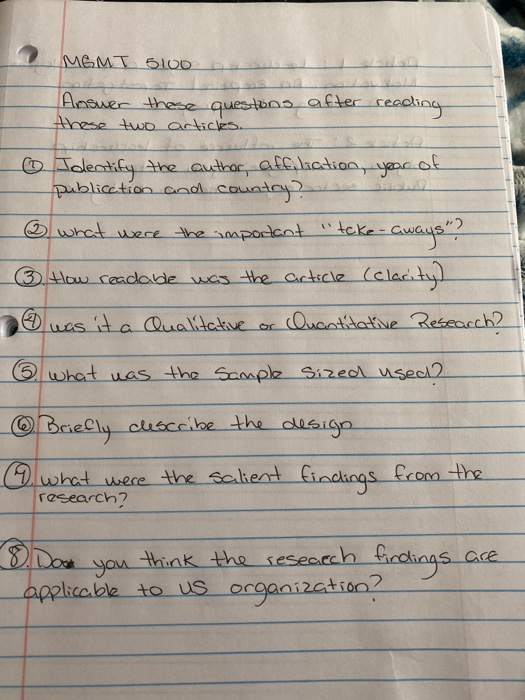 MGMT 5100
Answer these questions after reading
these two articles.
① Identify the author, affiliation, year of
publication and country?
② what were the important "take-aways"?
③ How readable was the article (clarity)
④ was it a Qualitative or Quantitative Research?
⑤ what was the sample sized used?
⑥ Briefly describe the design
⑦. what were the salient findings from the
research?
⑧. Do you think the research findings are
applicable to US organization?